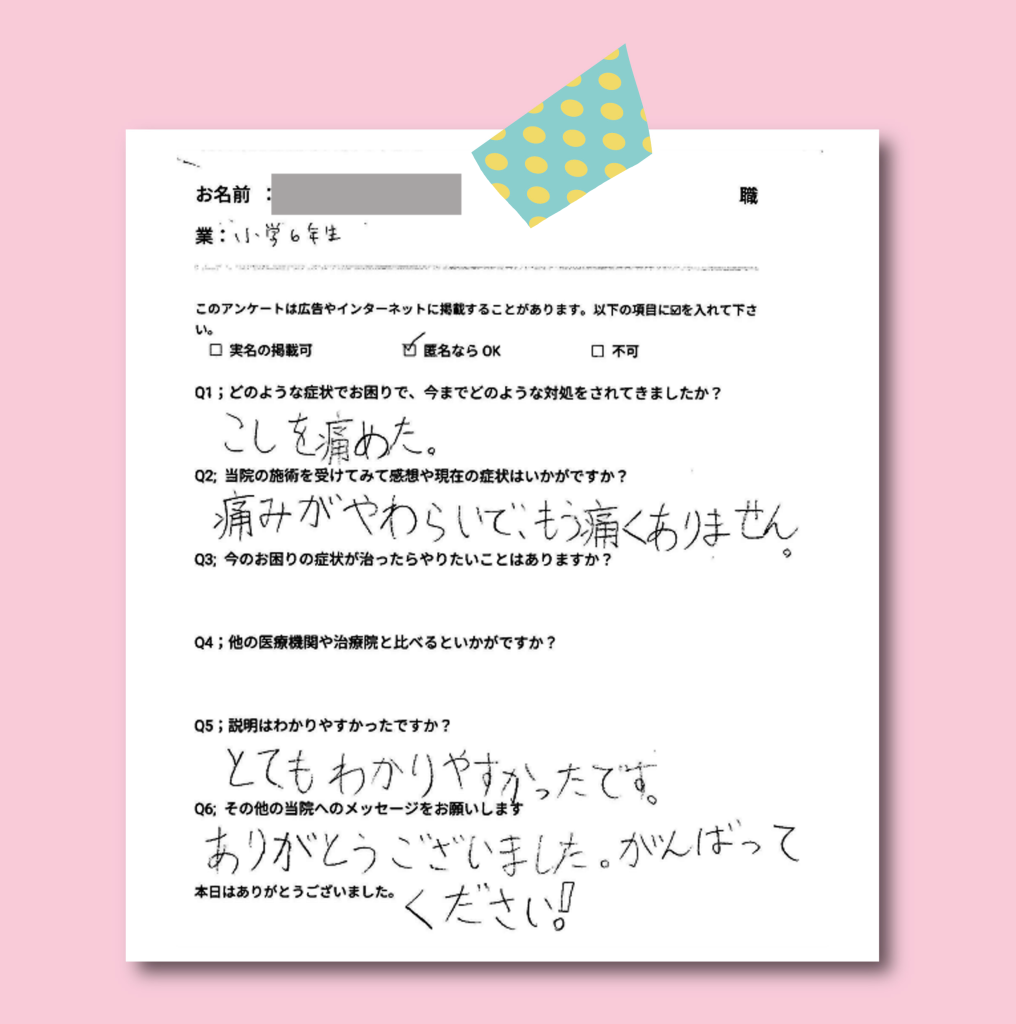 お名前 : 職
業：小学6年生
このアンケートは広告やインターネットに掲載することがあります。以下の項目に☑を入れて下さ
い。
☐ 実名の掲載可 ☑ 匿名なら OK ☐ 不可
Q1；どのような症状でお困りで、今までどのような対処をされてきましたか？
こしを痛めた。
Q2; 当院の施術を受けてみて感想や現在の症状はいかがですか？
痛みがやわらいで、もう痛くありません。
Q3; 今のお困りの症状が治ったらやりたいことはありますか？
Q4；他の医療機関や治療院と比べるといかがですか？
Q5；説明はわかりやすかったですか？
とてもわかりやすかったです。
Q6; その他の当院へのメッセージをお願いします
ありがとうございました。がんばって
本日はありがとうございました。
ください!